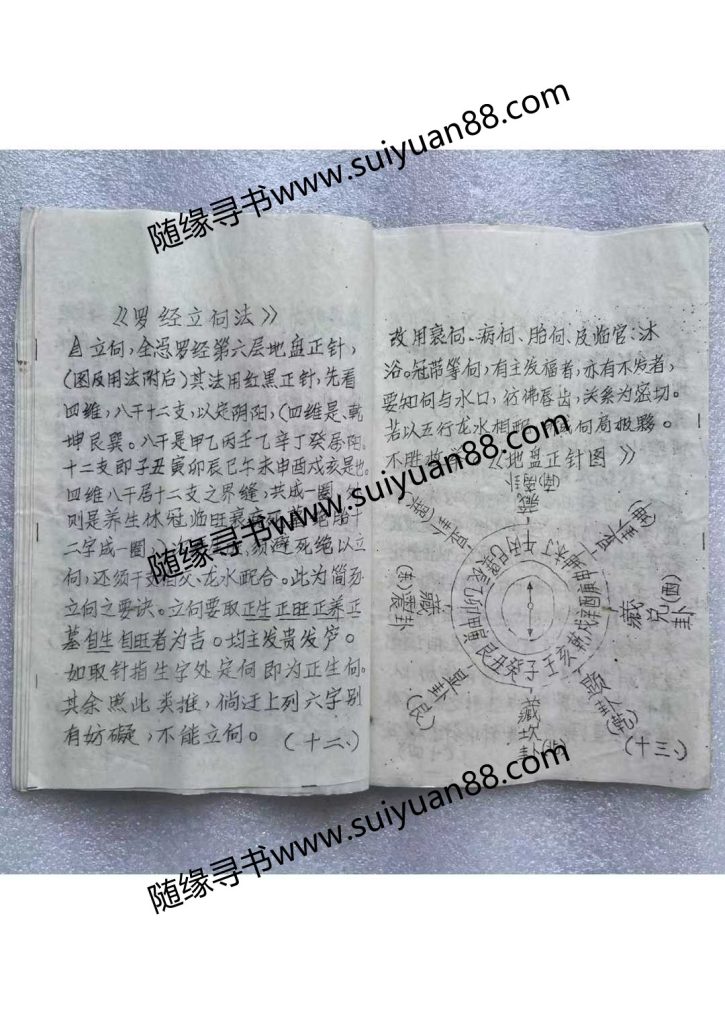 随缘寻书www.suiyuan88.com
《罗经立向法》
立向,全凭罗经第六层地盘正针,
(图反用法附后)其法用红黑正针,先看
四维,八干十二支,以定阴阳,(四维是、乾
坤艮巽。八干是甲乙丙壬乙辛丁癸居阳。
十二支即子丑寅卯辰巳午未申酉戌亥是也
四维八干居十二支之界缝,共成一圈,
则是养生沐冠临旺衰病死墓绝胎十
二字成一圈,须避死绝以立
向,还须干支 龙水配合。此为简易
立向之要诀。立向要取正生正旺正养正
墓自生自旺者为吉。均主发贵发炉。
如取针指生字处定向即为正生向。
其余照此类推,倘迂上列六字别
有妨碍,不能立向。
(十二、)
故用衰向、病向、胎向、皮临官、沐
浴。冠带等向,有主发福者,亦有不发者,
要知向与水口,彷彿唇齿,关系为密切。
若以五行龙水相配 向局极夥。
不胜 《地盘正针图》
随缘寻书www.suiyuan88.com
藏
离卦
(南)
藏
震卦
(东)
藏
兑
卦
(西)
藏
坎
卦
(北)
子
癸
丑
艮
寅
甲
卯
乙
辰
巽
巳
丙
午
丁
未
坤
申
庚
酉
辛
戌
乾
亥
壬
(十三、)
随缘寻书www.suiyuan88.com